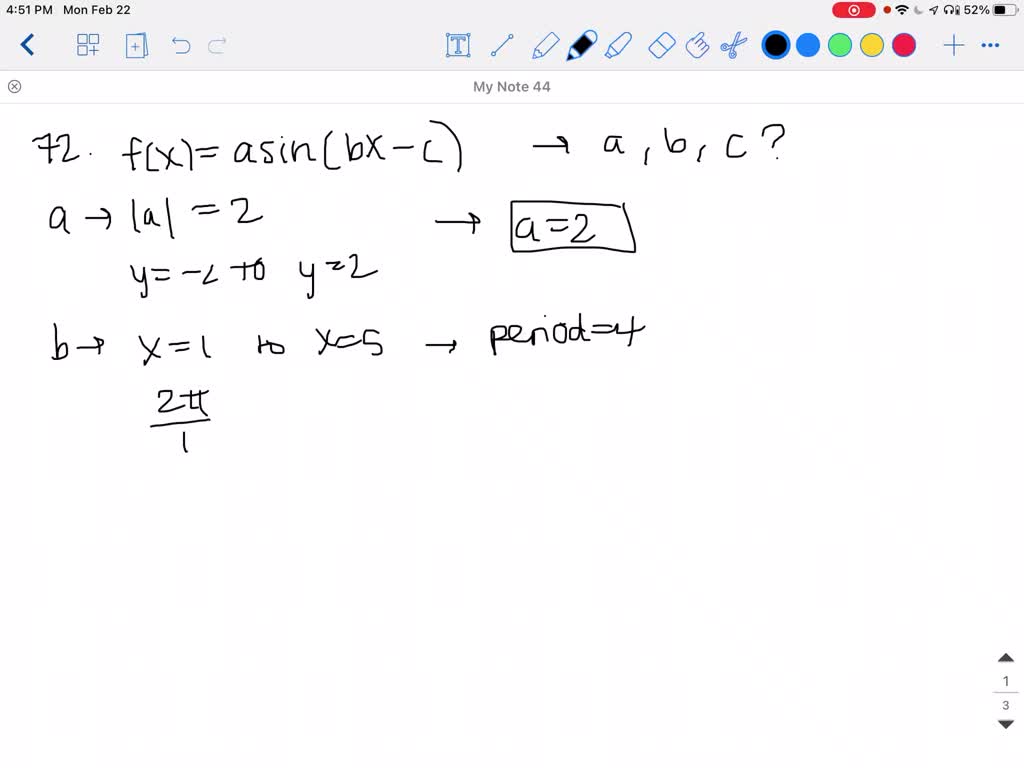 4:51 PM Mon Feb 22
52%
My Note 44
72. f(x) = asin(bx-c) → a, b, c ?
a → |a| = 2 → a=2
y= -2 to y=2
b → x=1 to x=5 → period=4
2π
1
1
3